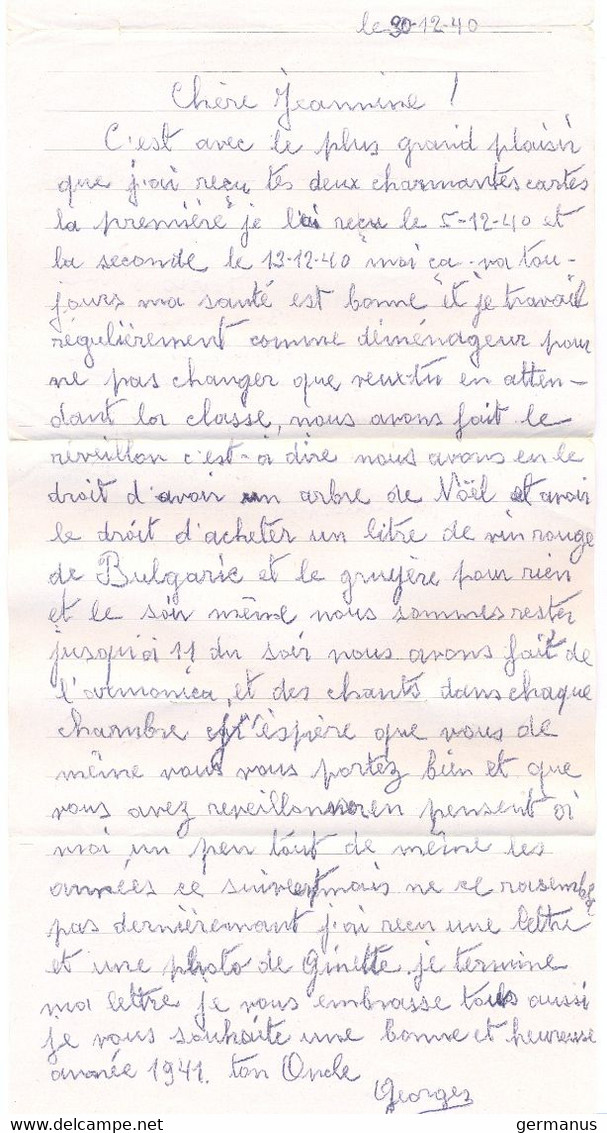 le 30-12-40
Chère Jeannine !
C'est avec le plus grand plaisir
que j'ai reçu tes deux charmantes cartes
la première je l'ai reçu le 5-12-40 et
la seconde le 13-12-40 moi ça va tou-
jours ma santé est bonne et je travail
régulièrement comme déménageur pour
ne pas changer que veux-tu en atten-
dant la classe, nous avons fait le
réveillon c'est-à dire nous avons eu le
droit d'avoir un arbre de Nöel et avoir
le droit d'acheter un litre de vin rouge
de Bulgarie et le gruyère pour rien
et le soir même nous sommes rester
jusqu'à 11 du soir nous avons fait de
l'armonica, et des chants dans chaque
chambre j'éspère que vous de
même vous vous portez bien et que
vous avez reveillonner en pensent à
moi un peu tout de même les
années ce suivent mais ne ce rasemble
pas dernièremant j'ai reçu une lettre
et une photo de Ginette je termine
ma lettre je vous embrasse tous aussi
je vous souhaite une bonne et heureuse
année 1941. ton Oncle
Georges
www.delcampe.net
germanus